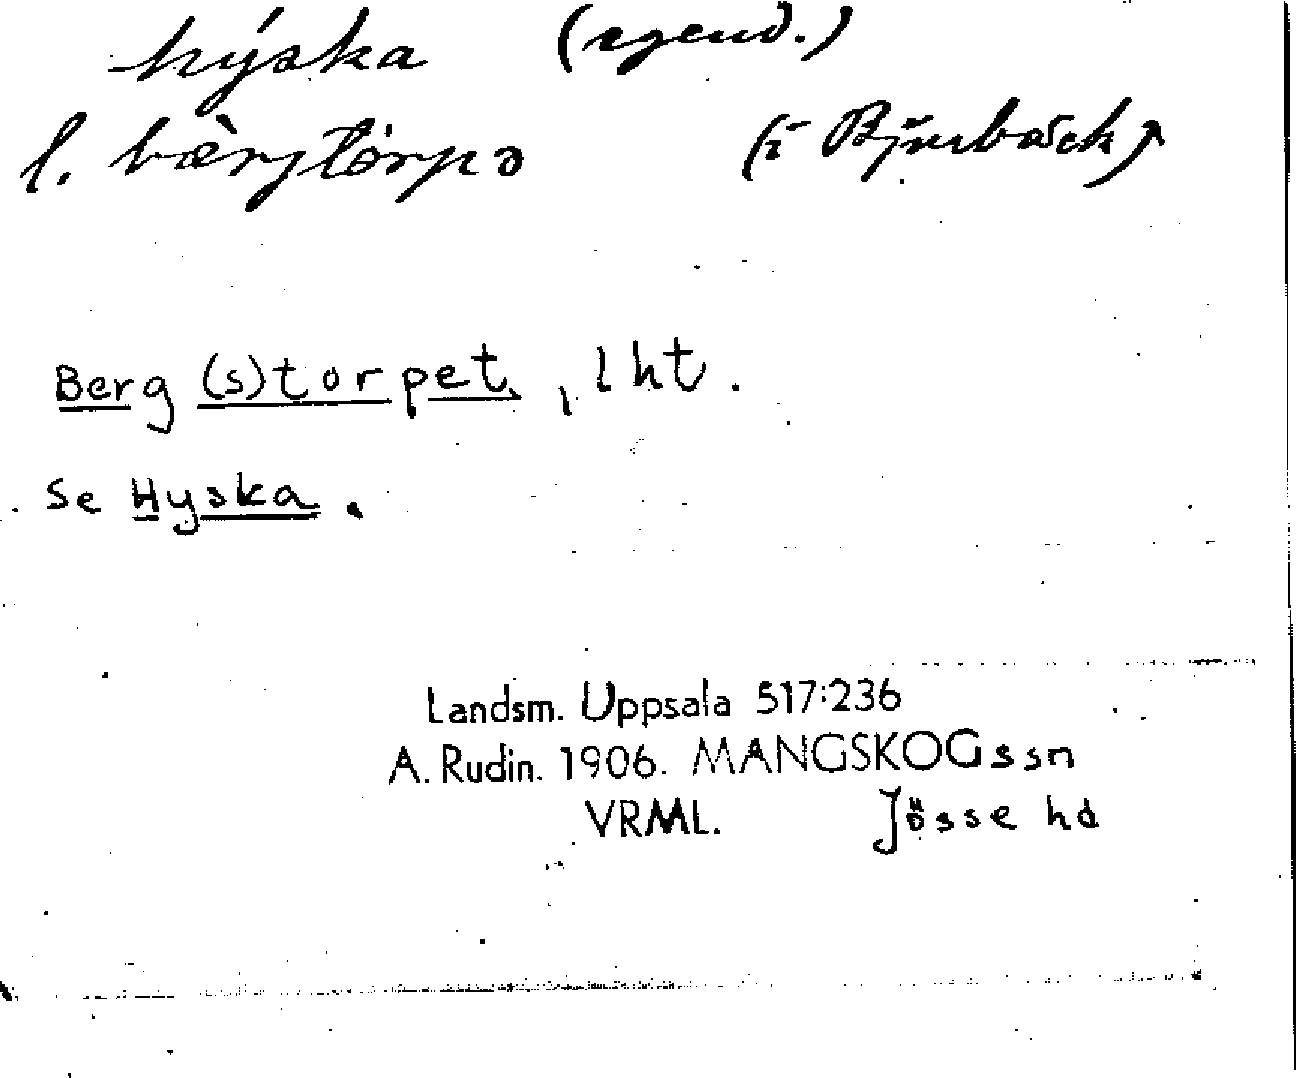 hýska (egend.)
l. bærjtòrpə (i Bjurbäck)
Berg(s)torpet, lht.
Se Hyska.
Landsm. Uppsala 517:236
A. Rudin. 1906. MANGSKOGssn
VRML. Jösse hd